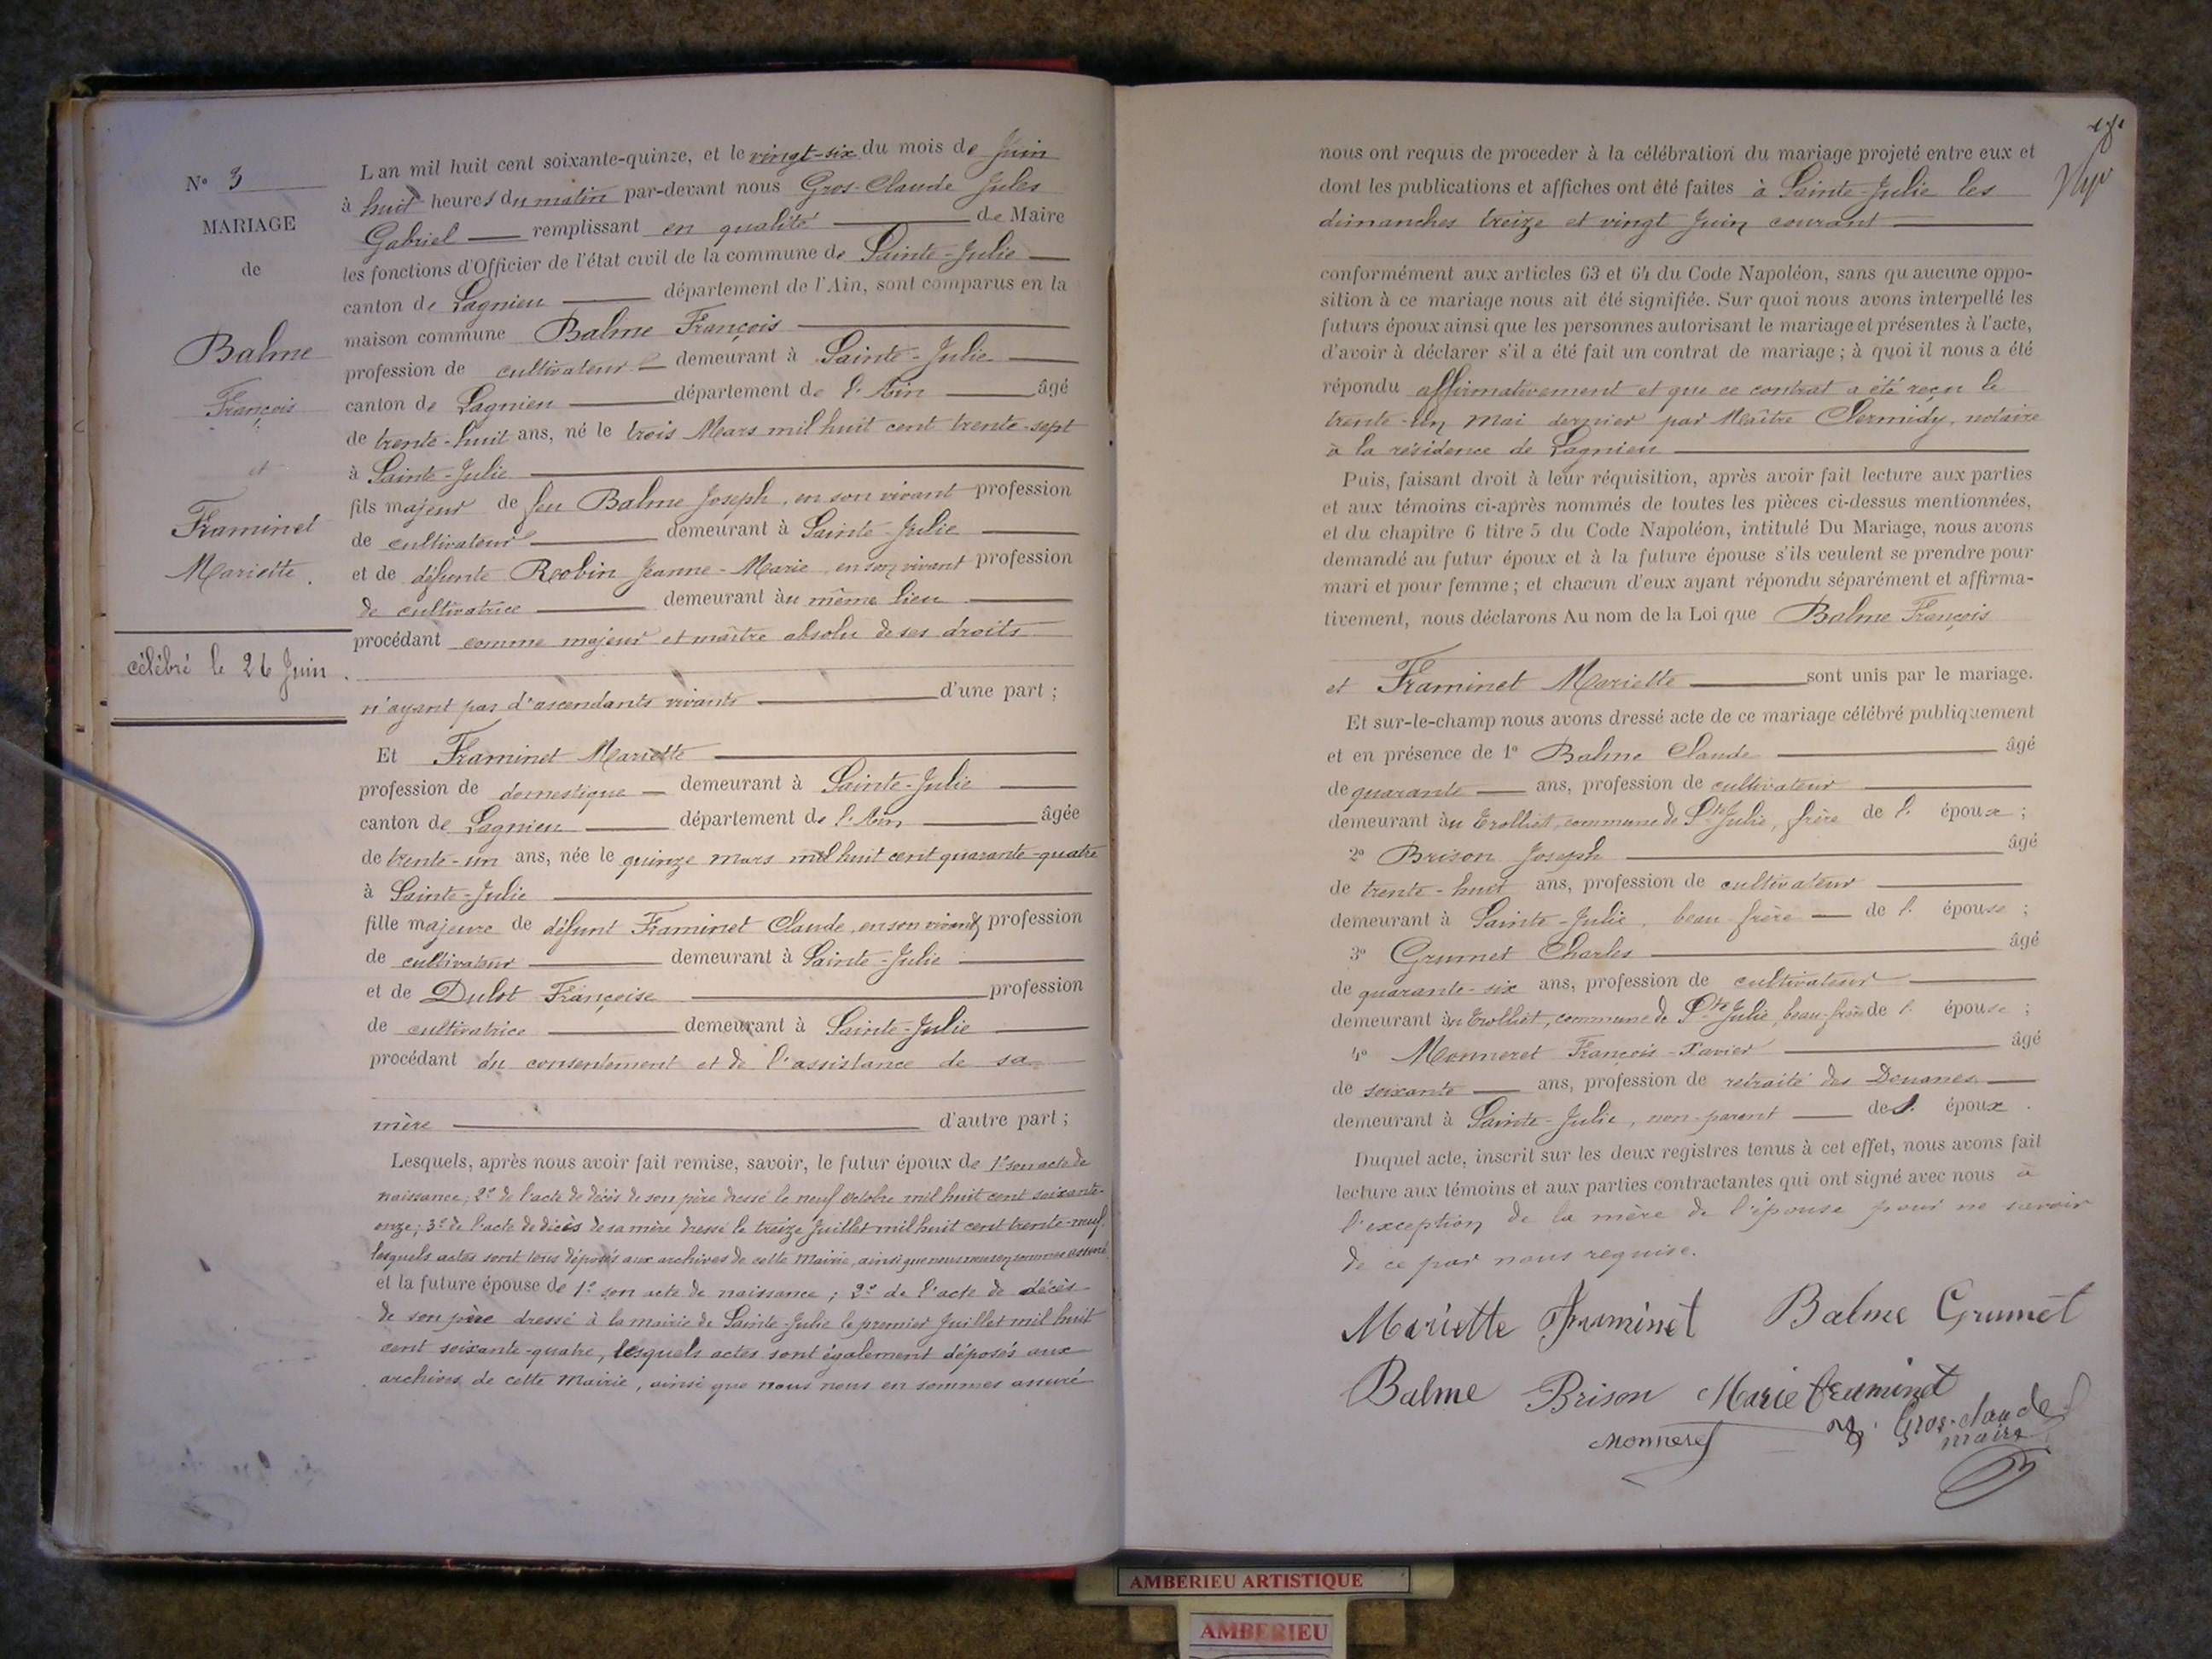 N° 3
MARIAGE
de
Balme
François
et
Framinet
Mariette.
célébré le 26 Juin.
L'an mil huit cent soixante-quinze, et le vingt-six du mois de Juin
à huit heures du matin par-devant nous Gros-Claude Jules
Gabriel remplissant en qualité de Maire
les fonctions d'Officier de l'état civil de la commune de Sainte-Julie
canton de Lagnieu département de l'Ain, sont comparus en la
maison commune Balme François
profession de cultivateur demeurant à Sainte-Julie
canton de Lagnieu département de l'Ain âgé
de trente-huit ans, né le trois Mars mil huit cent trente-sept
à Sainte-Julie
fils majeur de feu Balme Joseph, en son vivant profession
de cultivateur demeurant à Sainte-Julie
et de défunte Robin Jeanne-Marie en son vivant profession
de cultivatrice demeurant au même lieu
procédant comme majeur et maître absolu de ses droits
n'ayant pas d'ascendants vivants d'une part ;
Et Framinet Mariette
profession de domestique demeurant à Sainte-Julie
canton de Lagnieu département de l'Ain âgée
de trente-un ans, née le quinze mars mil huit cent quarante-quatre
à Sainte-Julie
fille majeure de défunt Framinet Claude, en son vivant profession
de cultivateur demeurant à Sainte-Julie
et de Dulot Françoise profession
de cultivatrice demeurant à Sainte-Julie
procédant du consentement et de l'assistance de sa
mère d'autre part ;
Lesquels, après nous avoir fait remise, savoir, le futur époux de 1° son acte de
naissance; 2° de l'acte de décès de son père dressé le neuf octobre mil huit cent soixante-
onze; 3° de l'acte de décès de sa mère dressé le treize Juillet mil huit cent trente-neuf,
lesquels actes sont tous déposés aux archives de cette Mairie, ainsi que nous nous en sommes assuré,
et la future épouse de 1° son acte de naissance; 2° de l'acte de décès
de son père dressé à la mairie de Sainte-Julie le premier Juillet mil huit
cent soixante-quatre, lesquels actes sont également déposés aux
archives de cette Mairie, ainsi que nous nous en sommes assuré
nous ont requis de proceder à la célébration du mariage projeté entre eux et
dont les publications et affiches ont été faites à Sainte-Julie les
dimanches treize et vingt Juin courant
conformément aux articles 63 et 64 du Code Napoléon, sans qu aucune oppo-
sition à ce mariage nous ait été signifiée. Sur quoi nous avons interpellé les
futurs époux ainsi que les personnes autorisant le mariage et présentes à l'acte,
d'avoir à déclarer s'il a été fait un contrat de mariage ; à quoi il nous a été
répondu affirmativement et que ce contrat a été reçu le
trente-un mai dernier par Maître Clermidy, notaire
à la résidence de Lagnieu
Puis, faisant droit à leur réquisition, après avoir fait lecture aux parties
et aux témoins ci-après nommés de toutes les pièces ci-dessus mentionnées,
et du chapitre 6 titre 5 du Code Napoléon, intitulé Du Mariage, nous avons
demandé au futur époux et à la future épouse s'ils veulent se prendre pour
mari et pour femme ; et chacun d'eux ayant répondu séparément et affirma-
tivement, nous déclarons Au nom de la Loi que Balme François
et Framinet Mariette sont unis par le mariage.
Et sur-le-champ nous avons dressé acte de ce mariage célébré publiquement
et en présence de 1° Balme Claude âgé
de quarante ans, profession de cultivateur
demeurant au Trolliet, commune de Ste Julie, frère de l' époux ;
2° Brison Joseph âgé
de trente-huit ans, profession de cultivateur
demeurant à Sainte-Julie, beau frère de l' épouse ;
3° Grumet Charles âgé
de quarante-six ans, profession de cultivateur
demeurant au Trolliet, commune de Ste Julie, beau-frère de l' épouse ;
4° Monneret François-Xavier âgé
de soixante ans, profession de retraité des Douanes
demeurant à Sainte-Julie, non-parent de l' époux.
Duquel acte, inscrit sur les deux registres tenus à cet effet, nous avons fait
lecture aux témoins et aux parties contractantes qui ont signé avec nous à
l'exception de la mère de l'épouse pour ne savoir
de ce par nous requise.
Mariette Framinet Balme Grumet
Balme Brison Marie framinet
Monneret Gros-claude
maire
AMBERIEU ARTISTIQUE
AMBERIEU